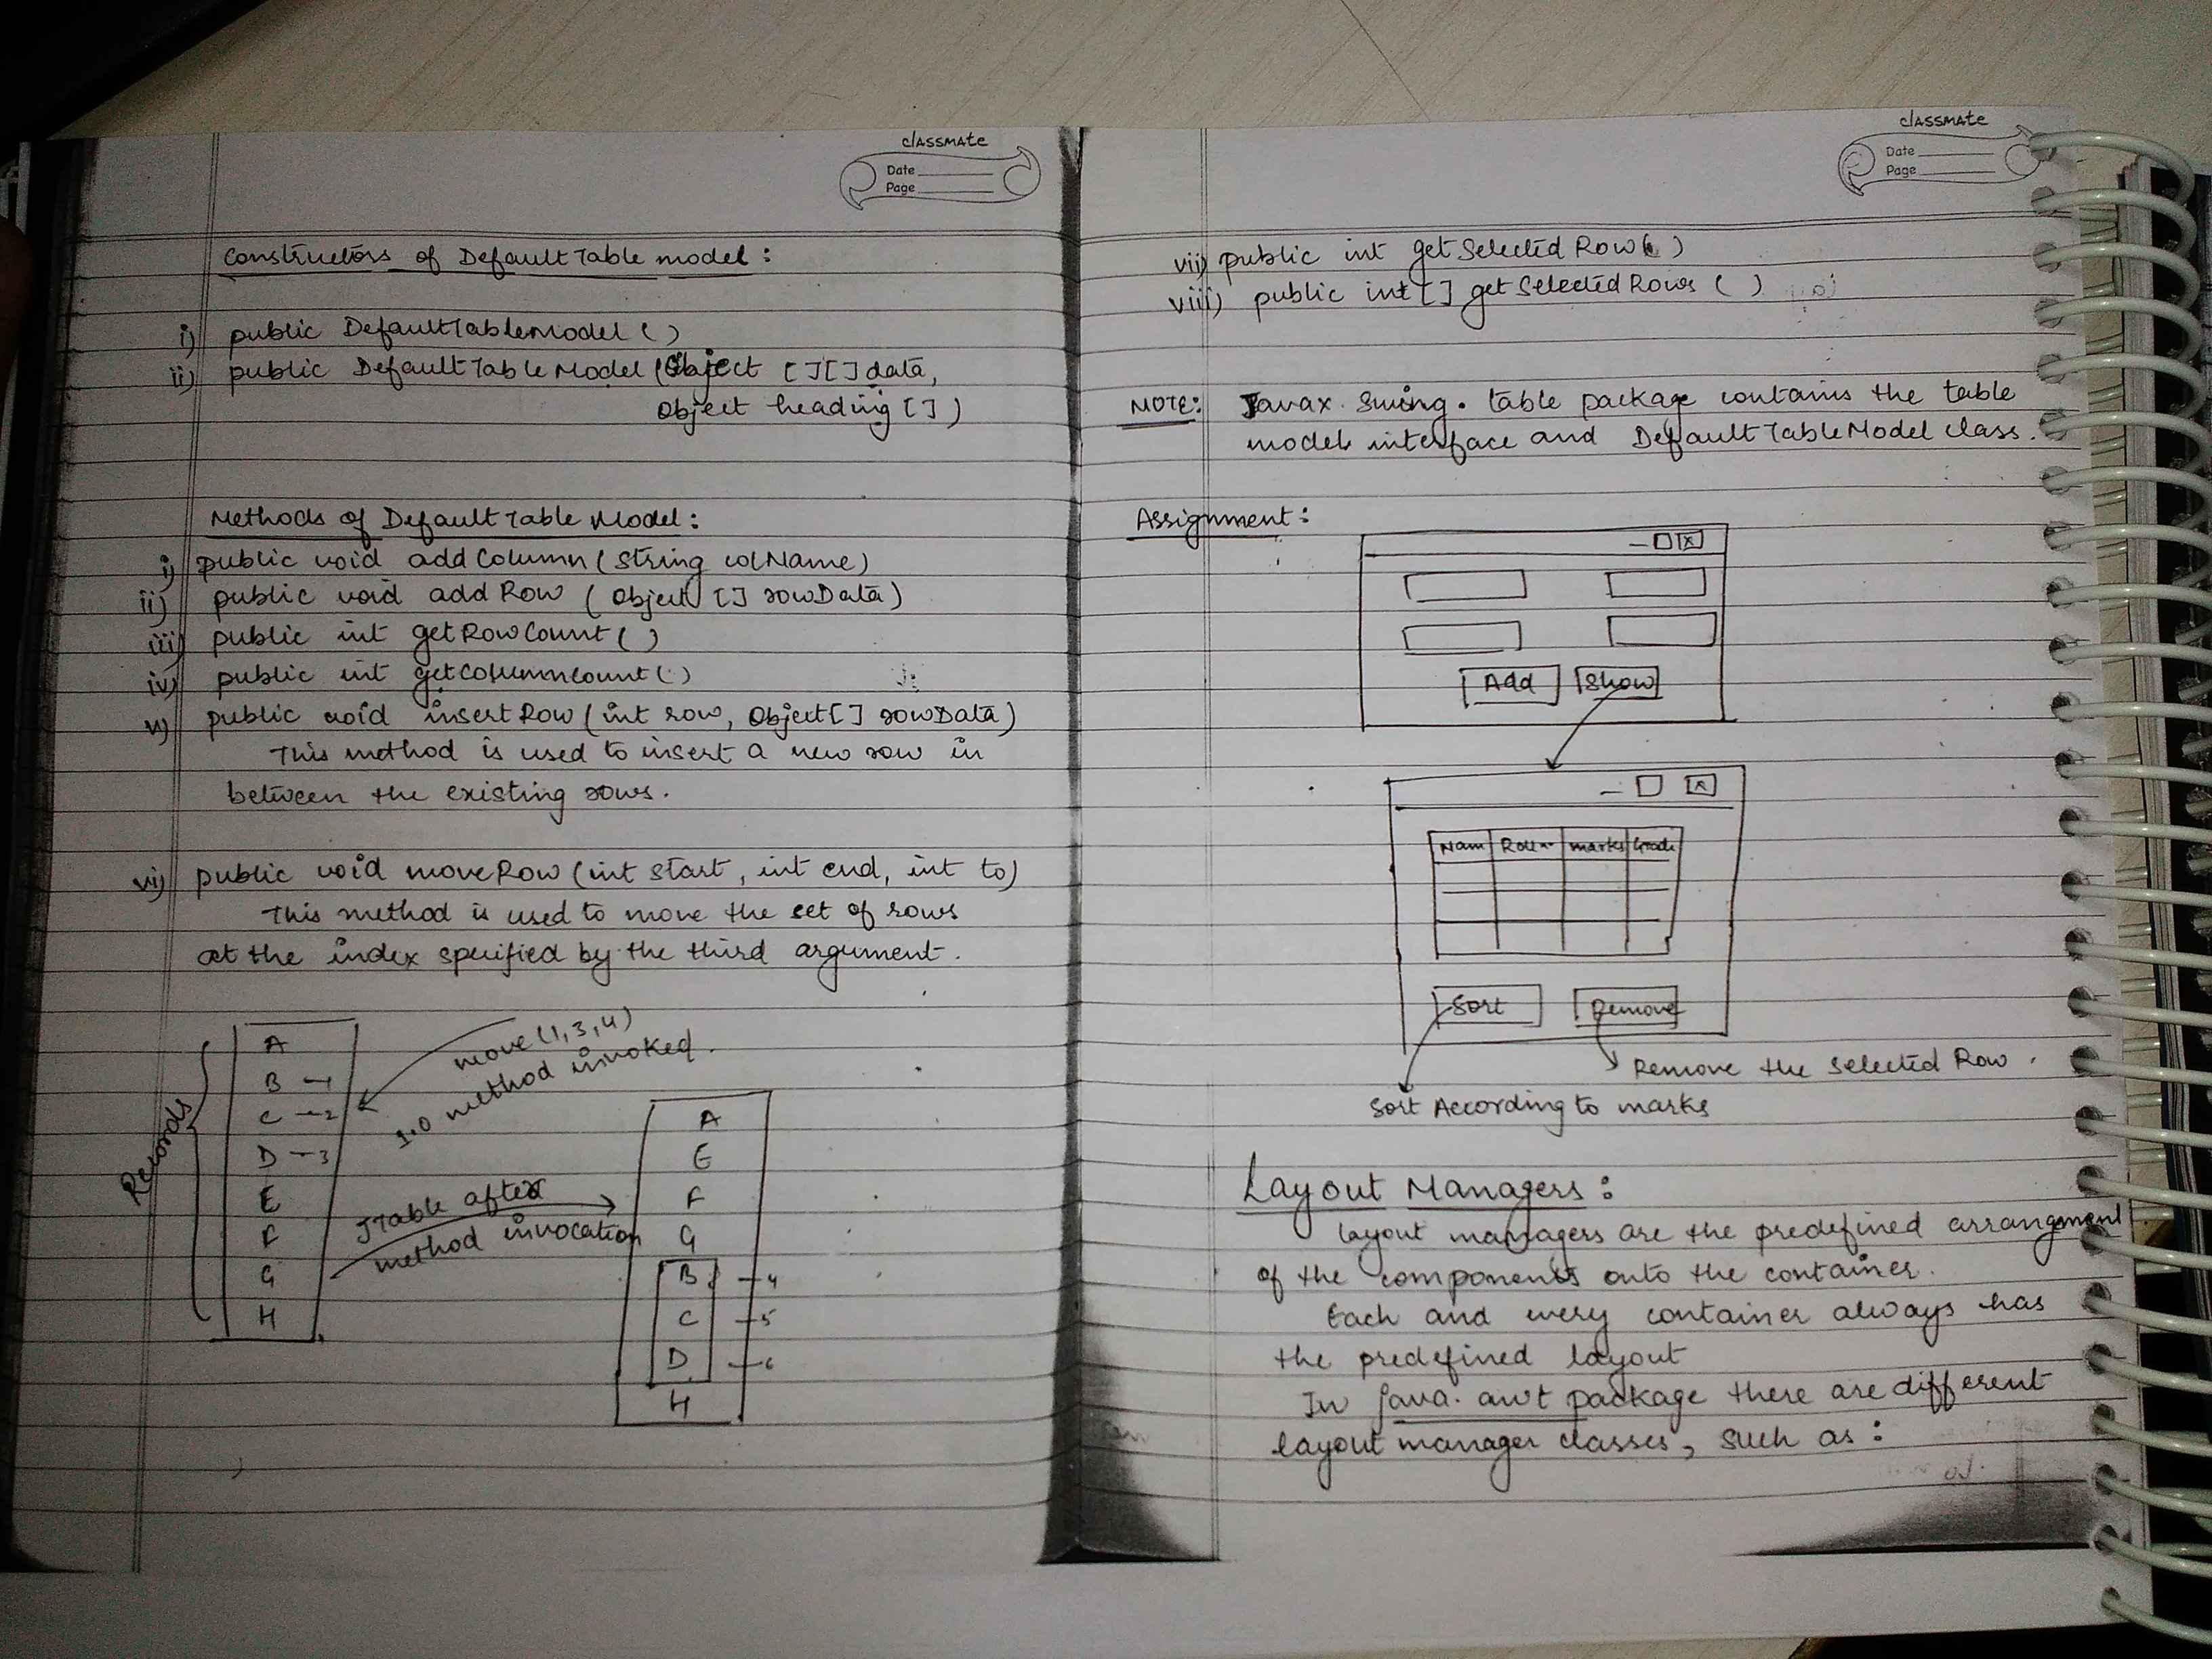 classmate
Date
Page
Constructors of DefaultTable model:
i) public DefaultTableModel ( )
ii) public DefaultTableModel (Object [ ][ ] data,
Object heading [ ] )
Methods of DefaultTable Model:
i) public void addColumn (String colName)
ii) public void addRow (Object [ ] rowData)
iii) public int getRowCount ( )
iv) public int getColumnCount ( )
v) public void insertRow (int row, Object [ ] rowData)
This method is used to insert a new row in
between the existing rows.
vi) public void moveRow (int start, int end, int to)
This method is used to move the set of rows
at the index specified by the third argument.
Records
A
B - 1
C - 2
D - 3
E
F
G
H
move (1, 3, 4)
method invoked.
JTable after
method invocation
A
E
F
G
B - 4
C - 5
D - 6
H
classmate
Date
Page
vii) public int getSelectedRow ( )
viii) public int [ ] getSelectedRows ( )
NOTE: Javax. Swing. table package contains the table
model interface and DefaultTableModel class.
Assignment:
Add Show
Nam Roll marks Grade
Sort Remove
Remove the Selected Row.
Sort According to marks
Layout Managers:
layout managers are the predefined arrangment
of the components onto the container.
Each and every container always has
the predefined layout
In java. awt package there are different
layout manager classes, such as: